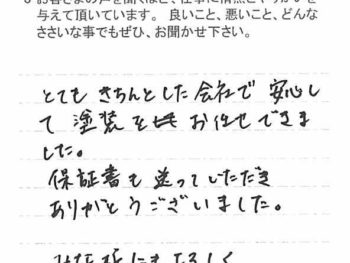 与えて頂いています。 良いこと、悪いこと、どんな
ささいな事でもぜひ、お聞かせ下さい。
とても きちんとした会社で 安心し
て 塗装を お任せできま
した。
保証書も 送っていただき
ありがとうございました。